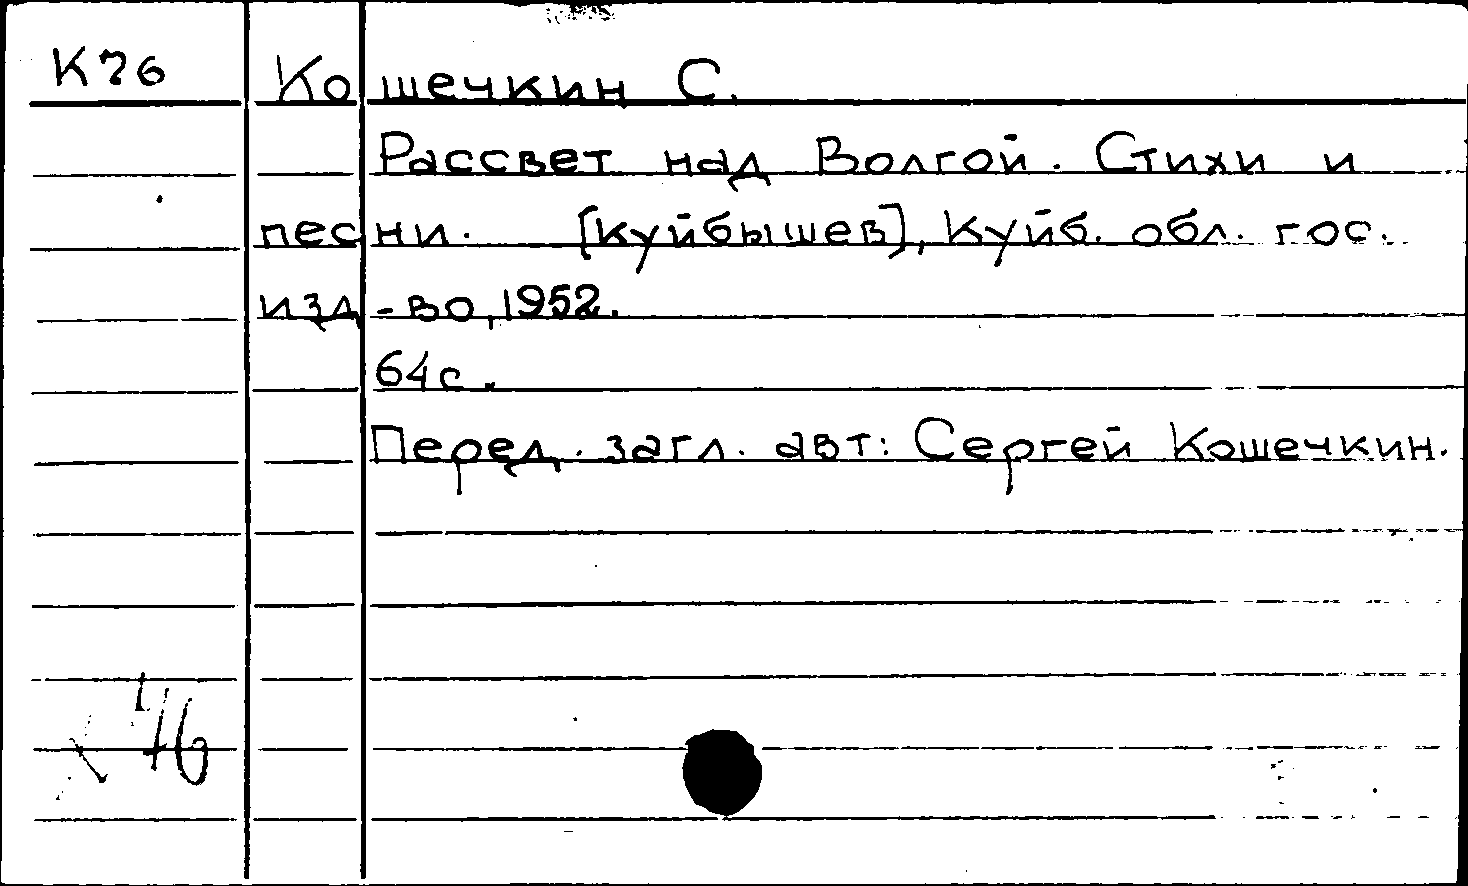 К76 Кошечкин С.
Рассвет над Волгой. Стихи и
песни. [Куйбышев], Куйб. обл. гос.
изд-во, 1952.
64 с.
Перед. загл. авт: Сергей Кошечкин.